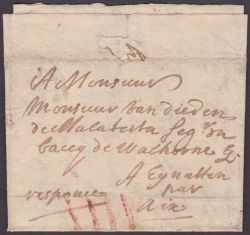 A Monsieur
Monsieur van dieden
de Malaberta seg
de Walhorne &
A Eynatten
par
responce Aix